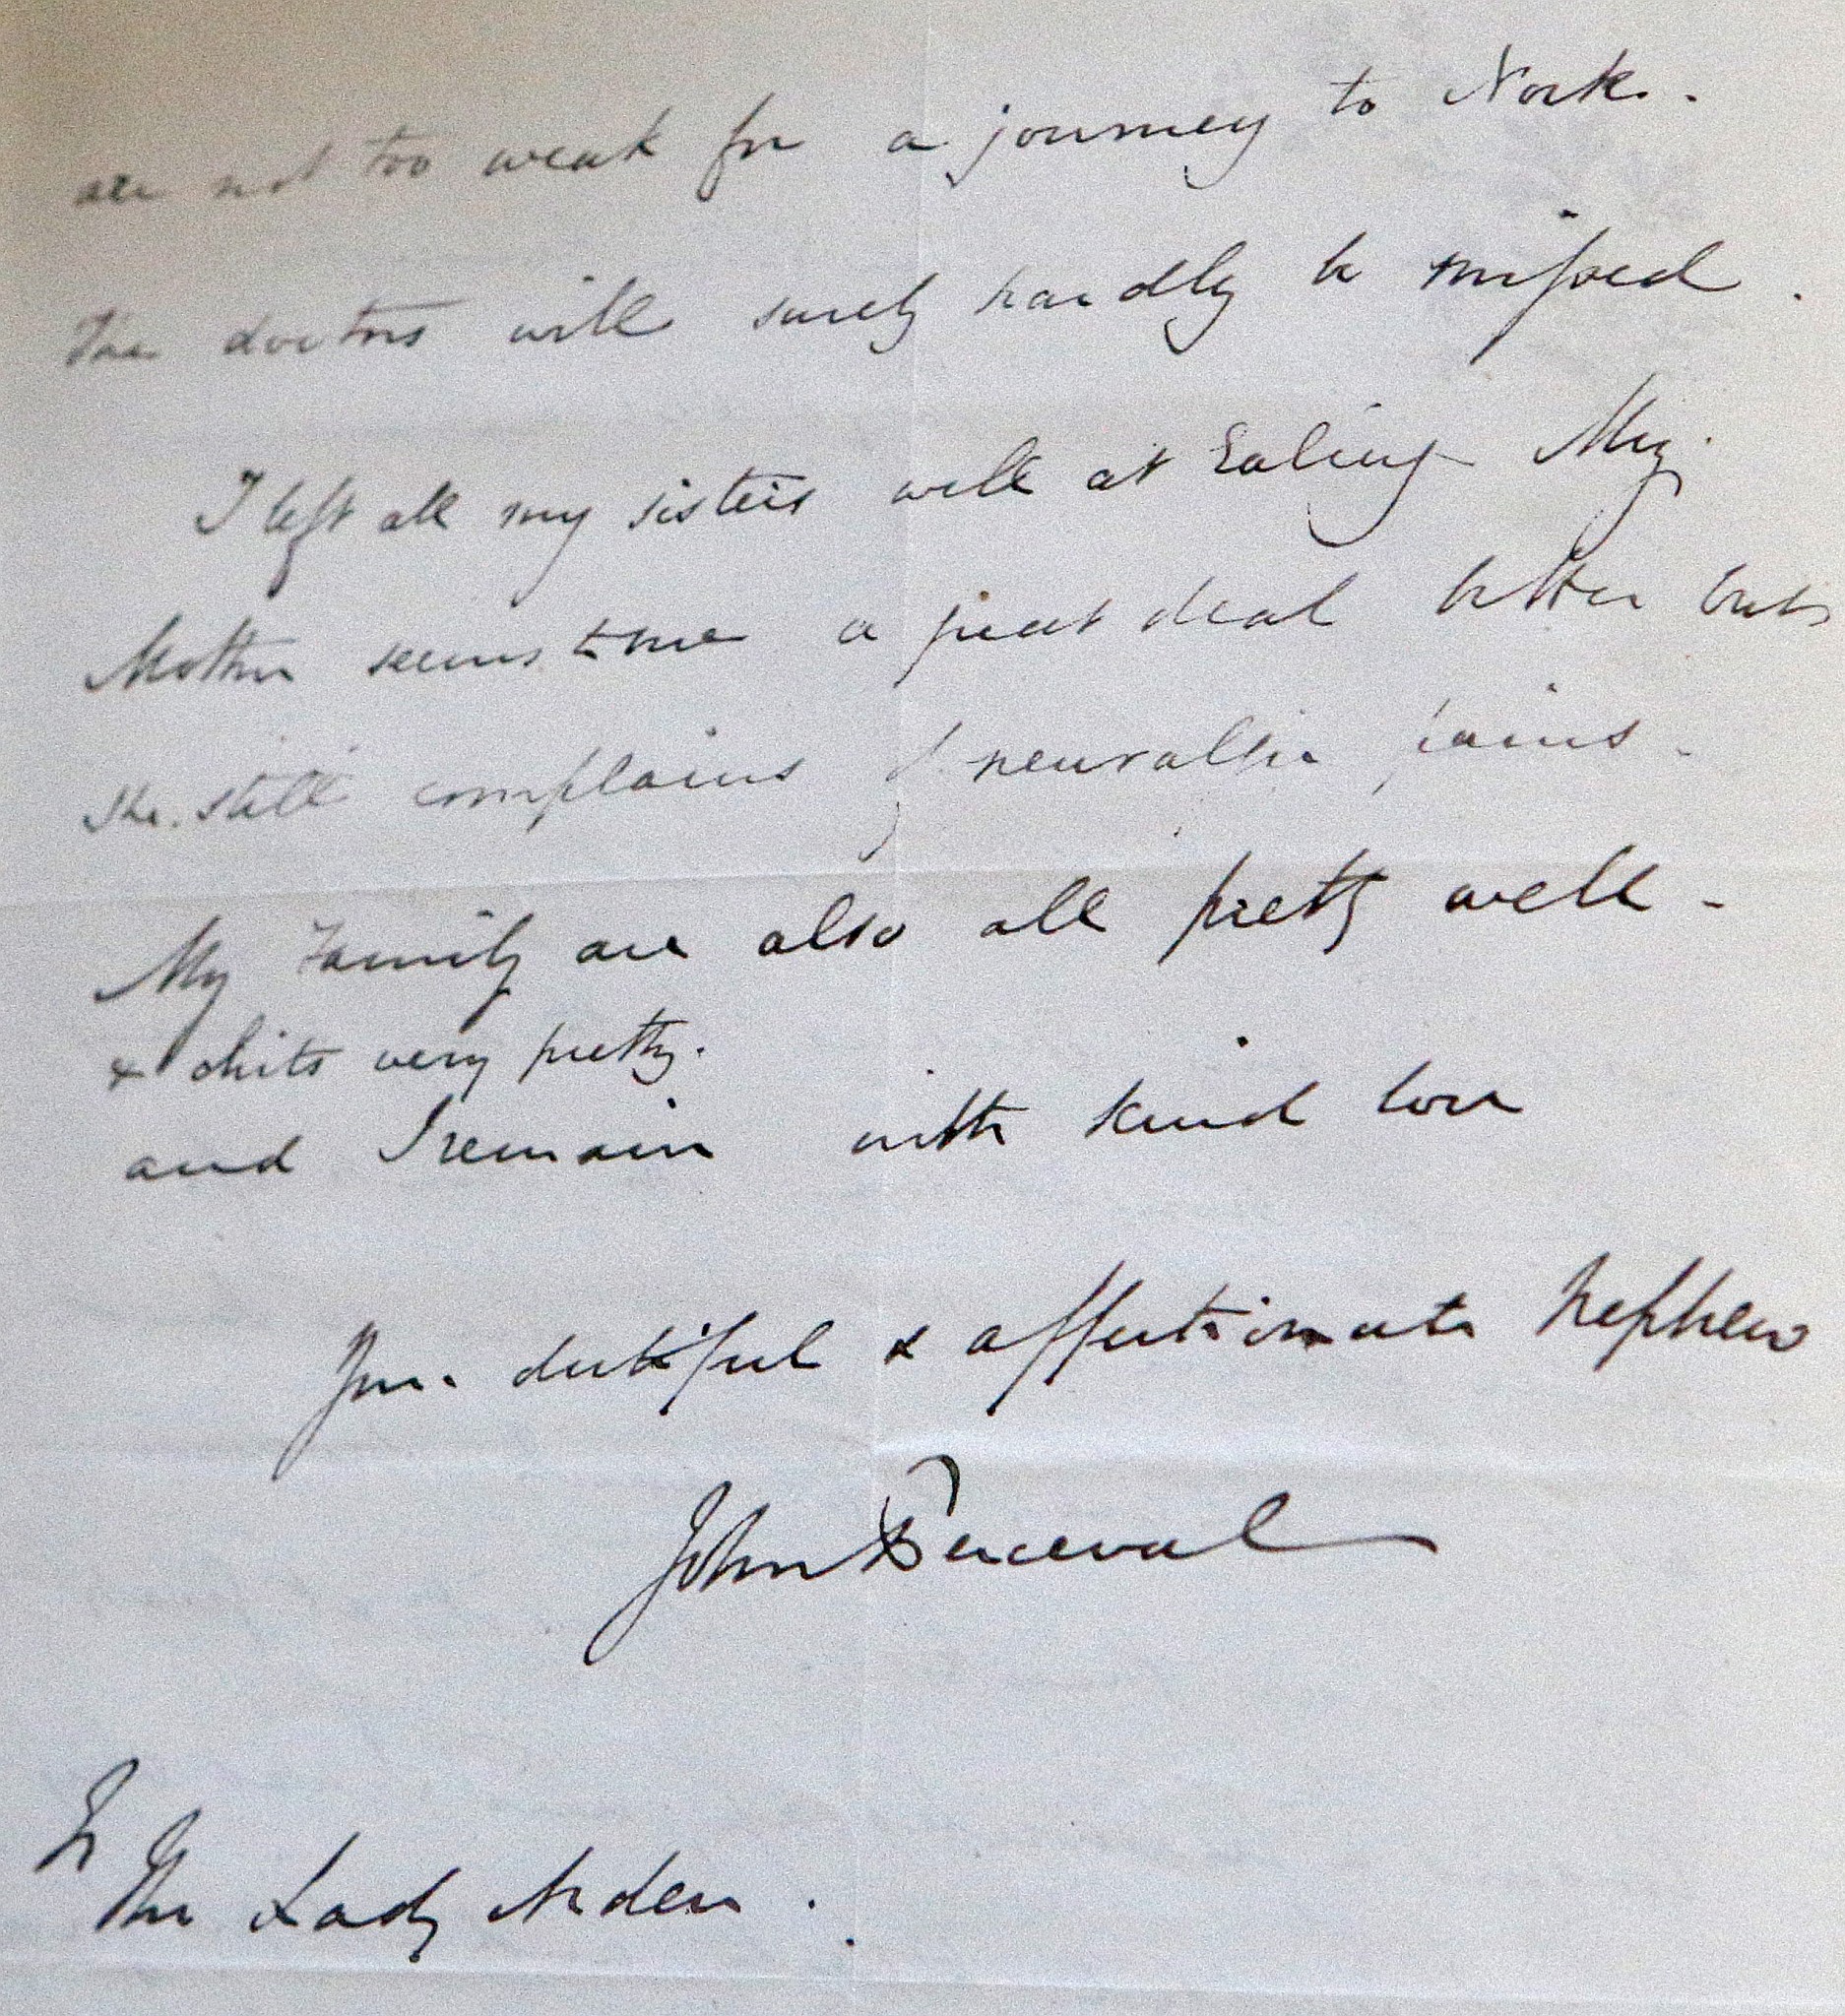 are not too weak for a journey to Nork.
The doctors will surely hardly be missed.
I left all my sisters well at Ealing My
Mother seems to me a great deal better but
she still complains of neuralgic pains.
My Family are also all pretty well -
& chits very pretty.
and I remain with kind love
Yr. dutiful & affectionate Nephew
John Perceval
To
The Lady Arden.